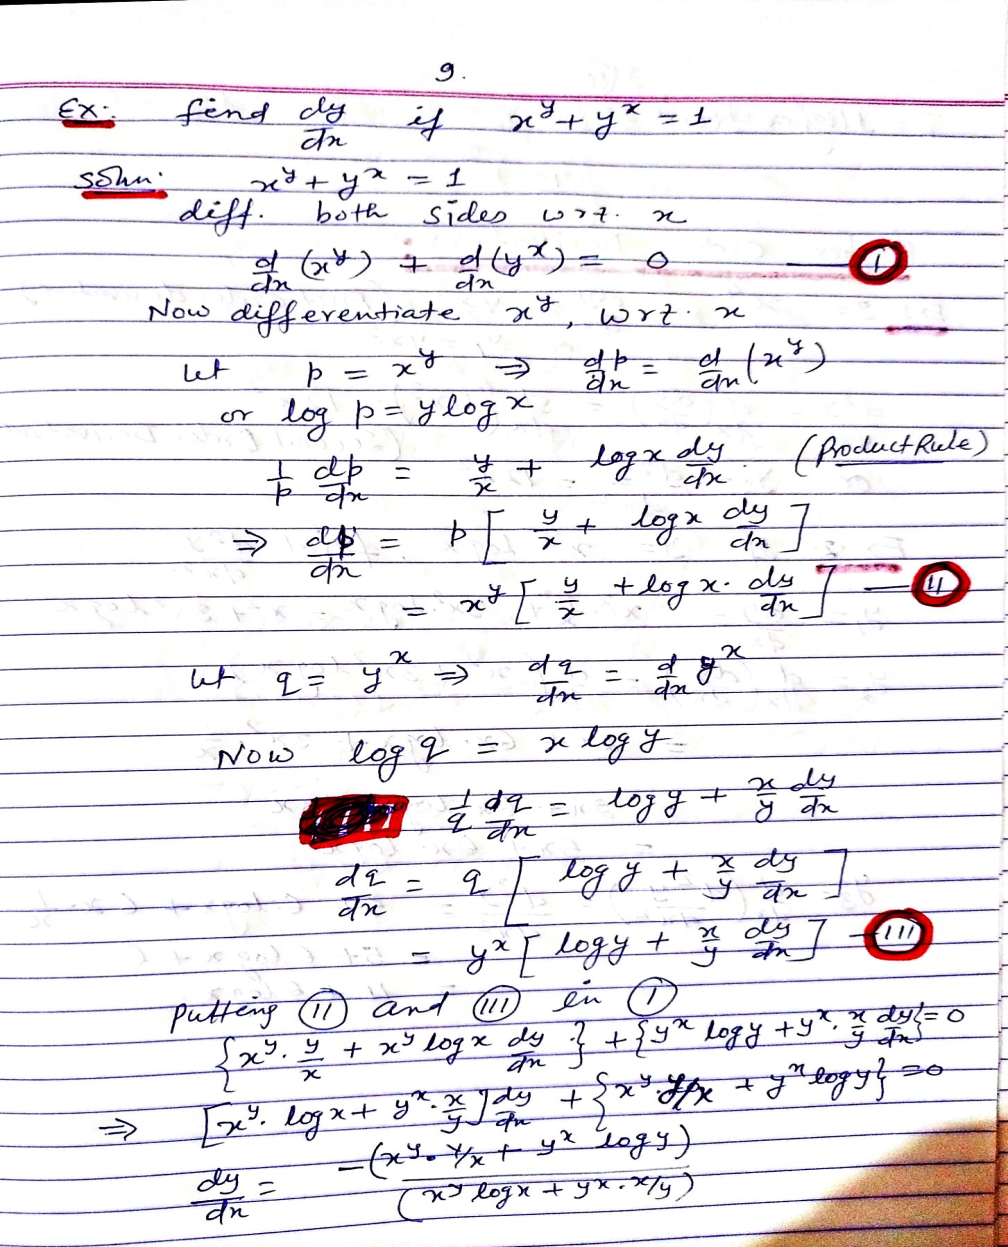 9.
Ex: find dy/dx if x^y + y^x = 1
Soln. x^y + y^x = 1
diff. both sides wrt. x
d/dx (x^y) + d/dx (y^x) = 0 — (I)
Now differentiate x^y, wrt. x
let p = x^y ⇒ dp/dx = d/dx (x^y)
or log p = y log x
1/p dp/dx = y/x + log x dy/dx. (Product Rule)
⇒ dp/dx = p [ y/x + log x dy/dx ]
= x^y [ y/x + log x. dy/dx ] — (II)
let q = y^x ⇒ dq/dx = d/dx y^x
Now log q = x log y
1/q dq/dx = log y + x/y dy/dx
dq/dx = q [ log y + x/y dy/dx ]
= y^x [ log y + x/y dy/dx ] — (III)
Putting (II) and (III) in (I)
{x^y. y/x + x^y log x dy/dx } + {y^x log y + y^x. x/y dy/dx} = 0
⇒ [x^y. log x + y^x. x/y] dy/dx + {x^y y/x + y^x log y} = 0
dy/dx = -(x^y. y/x + y^x log y) / (x^y log x + y^x. x/y)